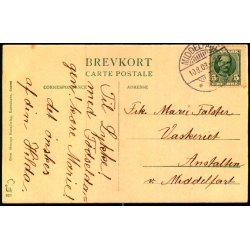 BREVKORT
CARTE POSTALE
CORRESPONDANCE
ADRESSE
MIDDELFART
Til Lykke!
med Fødselsda-
gen! kære Marie!
det ønskes
af din Hilda.
Frk. Marie Falster
Vaskeriet
Anstalten
v. Middelfart